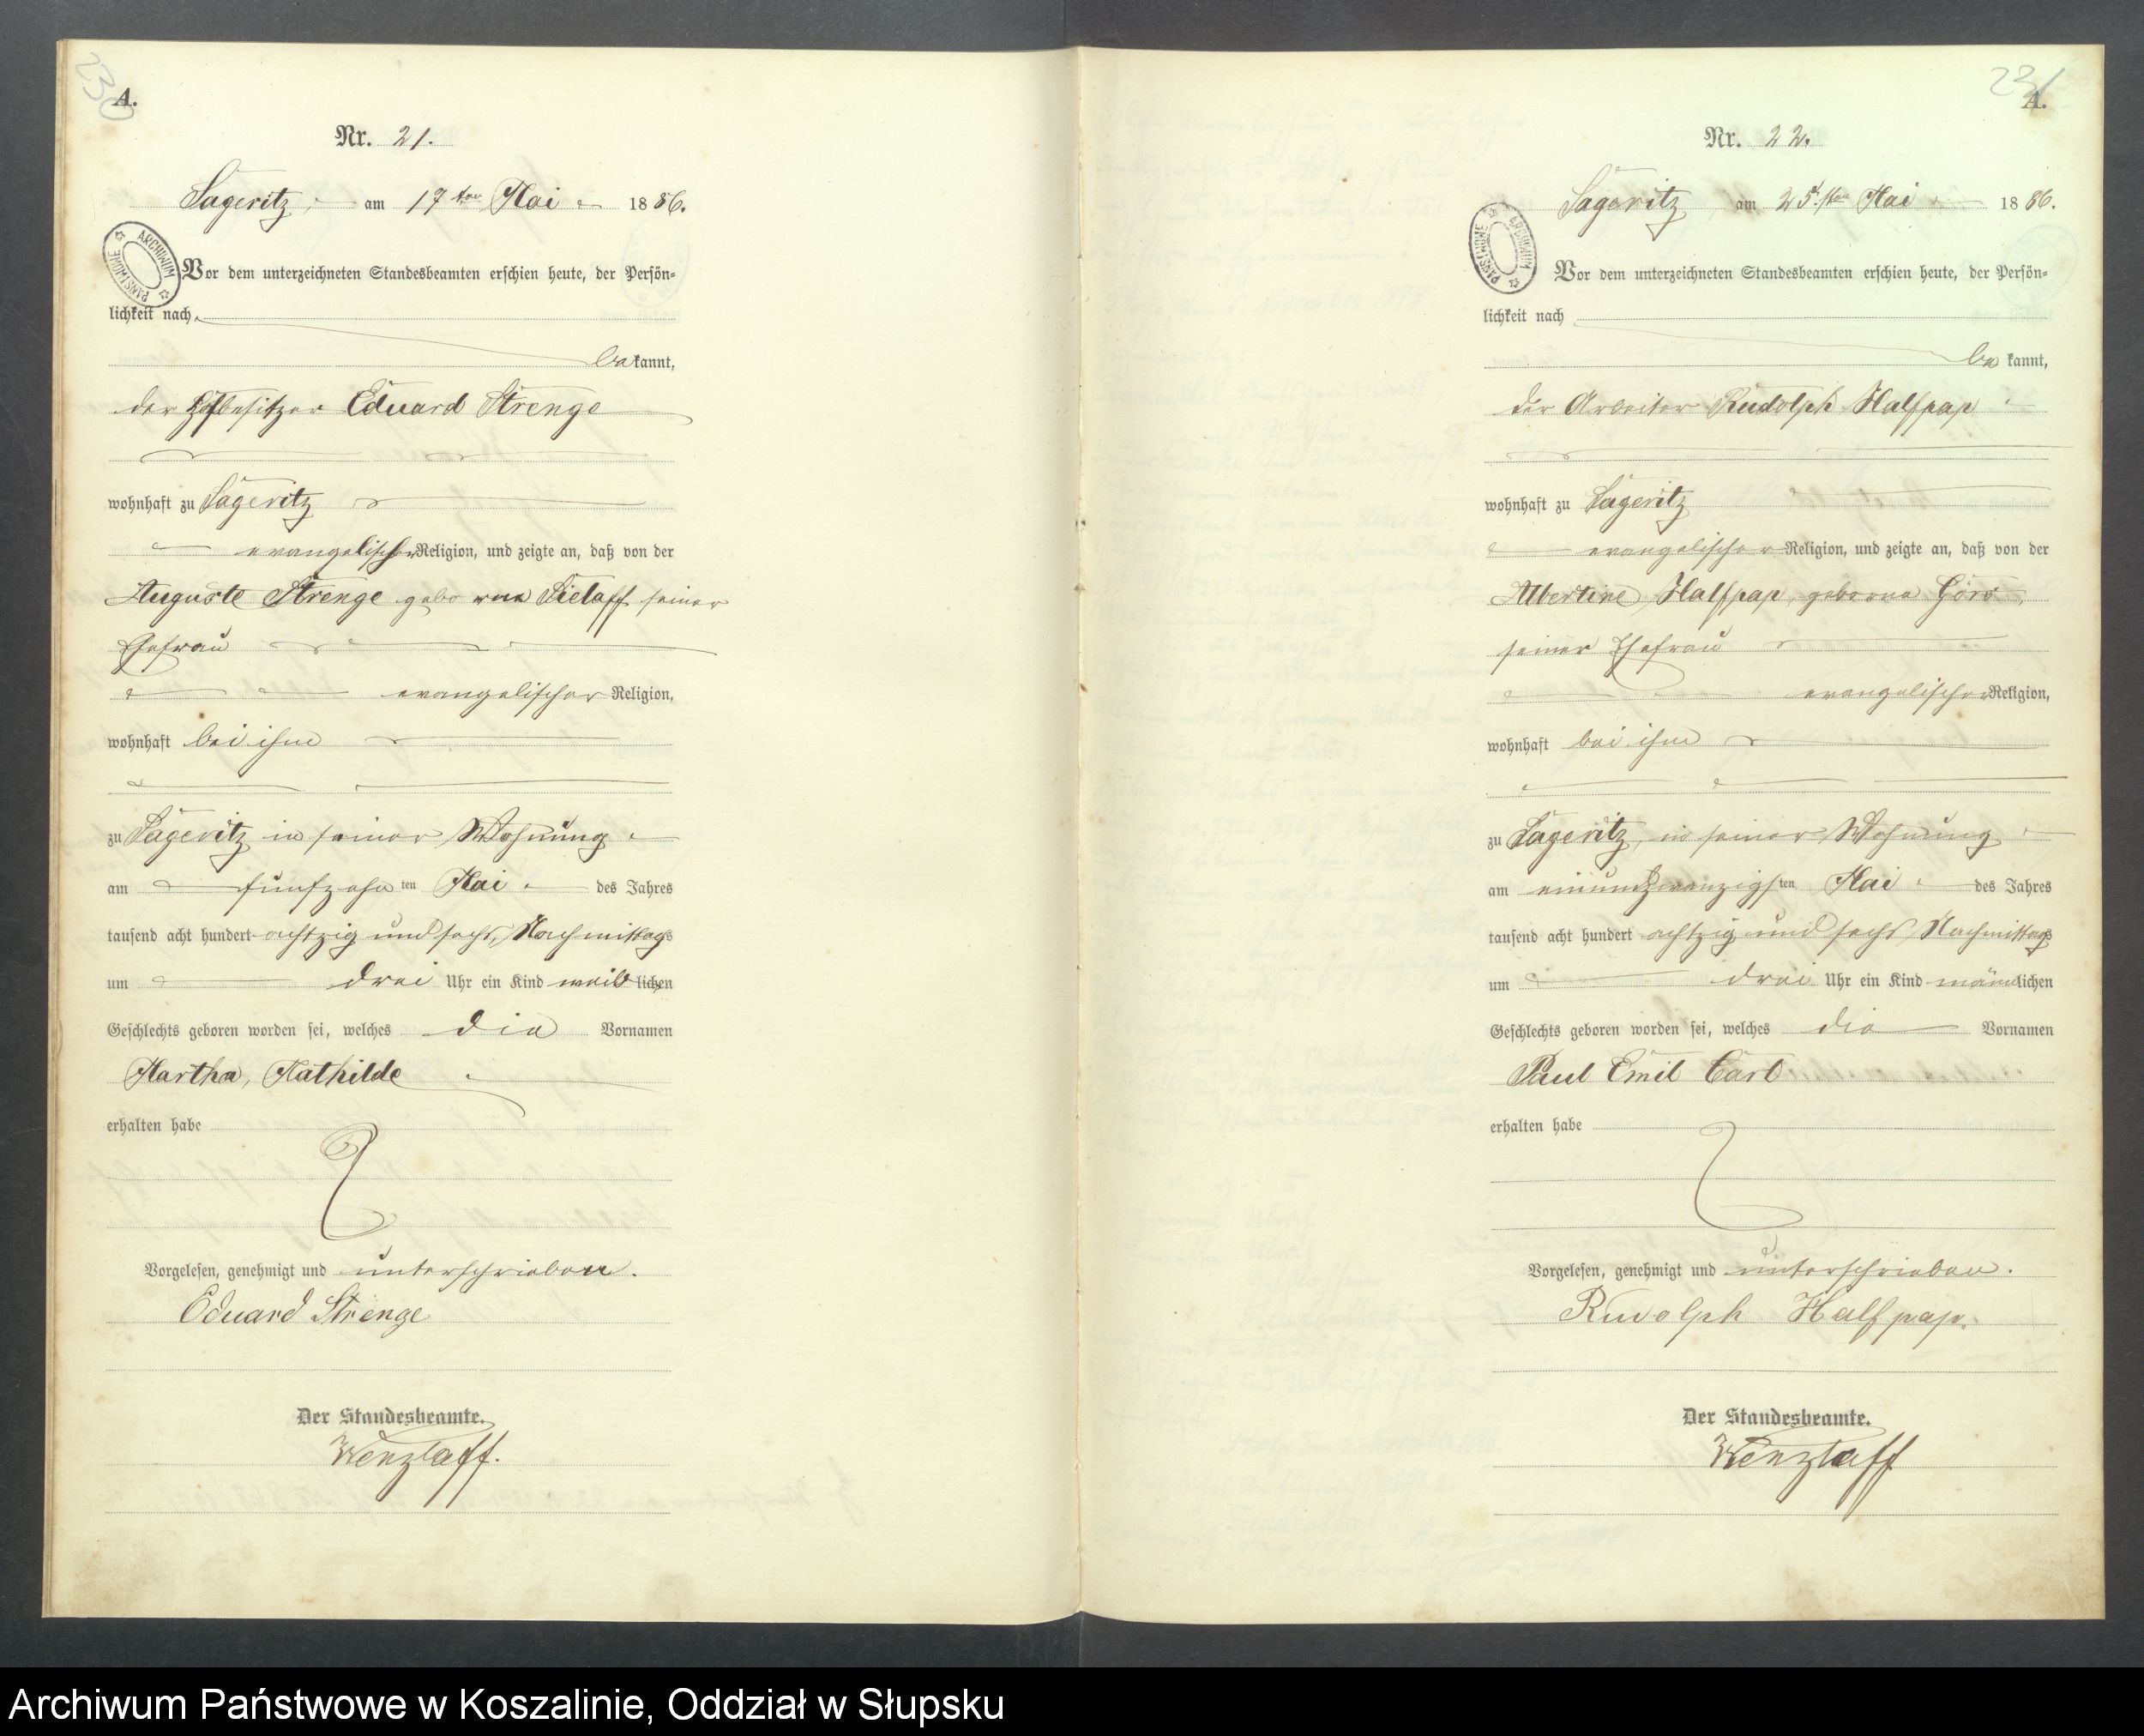 230
A.
Nr. 21.
Sageritz, am 17ten Mai 1886.
ARCHIWUM PAŃSTWOWE
Vor dem unterzeichneten Standesbeamten erschien heute, der Persön-
lichkeit nach
bekannt,
der Hofbesitzer Eduard Strenge
wohnhaft zu Sageritz
evangelischer Religion, und zeigte an, daß von der
Auguste Strenge geborne Sielaff seiner
Ehefrau
evangelischer Religion,
wohnhaft bei ihm
zu Sageritz in seiner Wohnung
am fünfzehnten Mai des Jahres
tausend acht hundert achtzig und sechs, Nachmittags
um drei Uhr ein Kind weiblichen
Geschlechts geboren worden sei, welches die Vornamen
Martha, Mathilde
erhalten habe
Vorgelesen, genehmigt und unterschrieben.
Eduard Strenge
Der Standesbeamte.
Wenzlaff.
231
A.
Nr. 22.
Sageritz, am 25.sten Mai 1886.
ARCHIWUM PAŃSTWOWE
Vor dem unterzeichneten Standesbeamten erschien heute, der Persön-
lichkeit nach
be kannt,
der Arbeiter Rudolph Halfpap
wohnhaft zu Sageritz
evangelischer Religion, und zeigte an, daß von der
Albertine Halfpap, geborne Görs,
seiner Ehefrau
evangelischer Religion,
wohnhaft bei ihm
zu Sageritz, in seiner Wohnung
am einundzwanzigsten Mai des Jahres
tausend acht hundert achtzig und sechs Nachmittags
um drei Uhr ein Kind männlichen
Geschlechts geboren worden sei, welches die Vornamen
Paul Emil Carl
erhalten habe
Vorgelesen, genehmigt und unterschrieben.
Rudolph Halfpap.
Der Standesbeamte.
Wenzlaff
Archiwum Państwowe w Koszalinie, Oddział w Słupsku